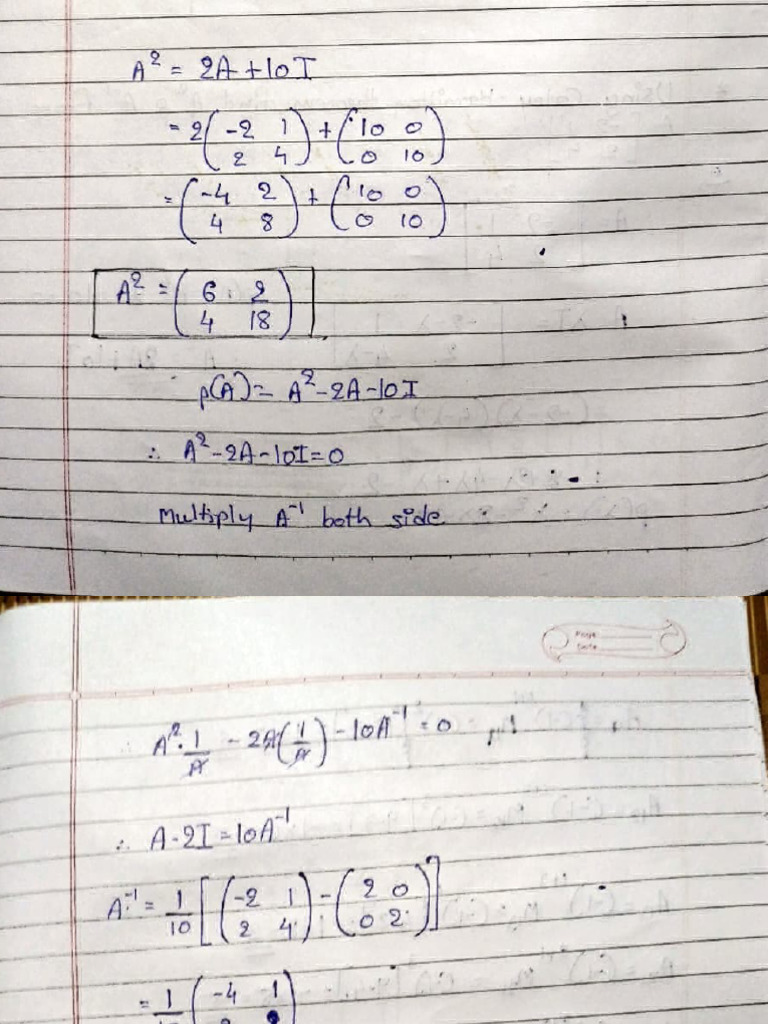 A² = 2A + 10I
= 2(-2 1) + (10 0)
(2 4) (0 10)
= (-4 2) + (10 0)
(4 8) (0 10)
A² = (6 2)
(4 18)
p(A) = A² - 2A - 10I
∴ A² - 2A - 10I = 0
Multiply A⁻¹ both side
Page
Date
A² · 1/A - 2A(1/A) - 10A⁻¹ = 0
∴ A - 2I = 10A⁻¹
A⁻¹ = 1/10 [(-2 1) - (2 0)]
(2 4) (0 2)
= 1/10 (-4 1)